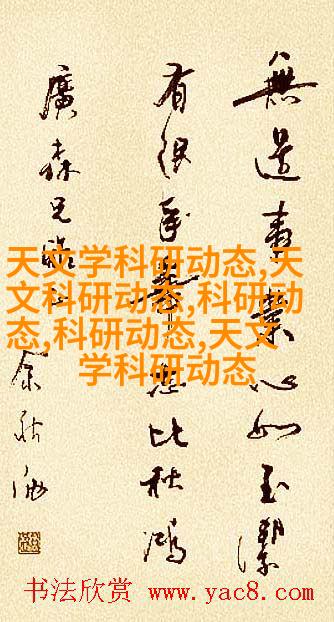 無事業心如玉潔
有限年華比秋鴻
廣森兄
余秋
天文学科研动态,天
文科研动态,科研动
态,科研动态,天文
学科研动态
书法欣赏 www.yac8.com